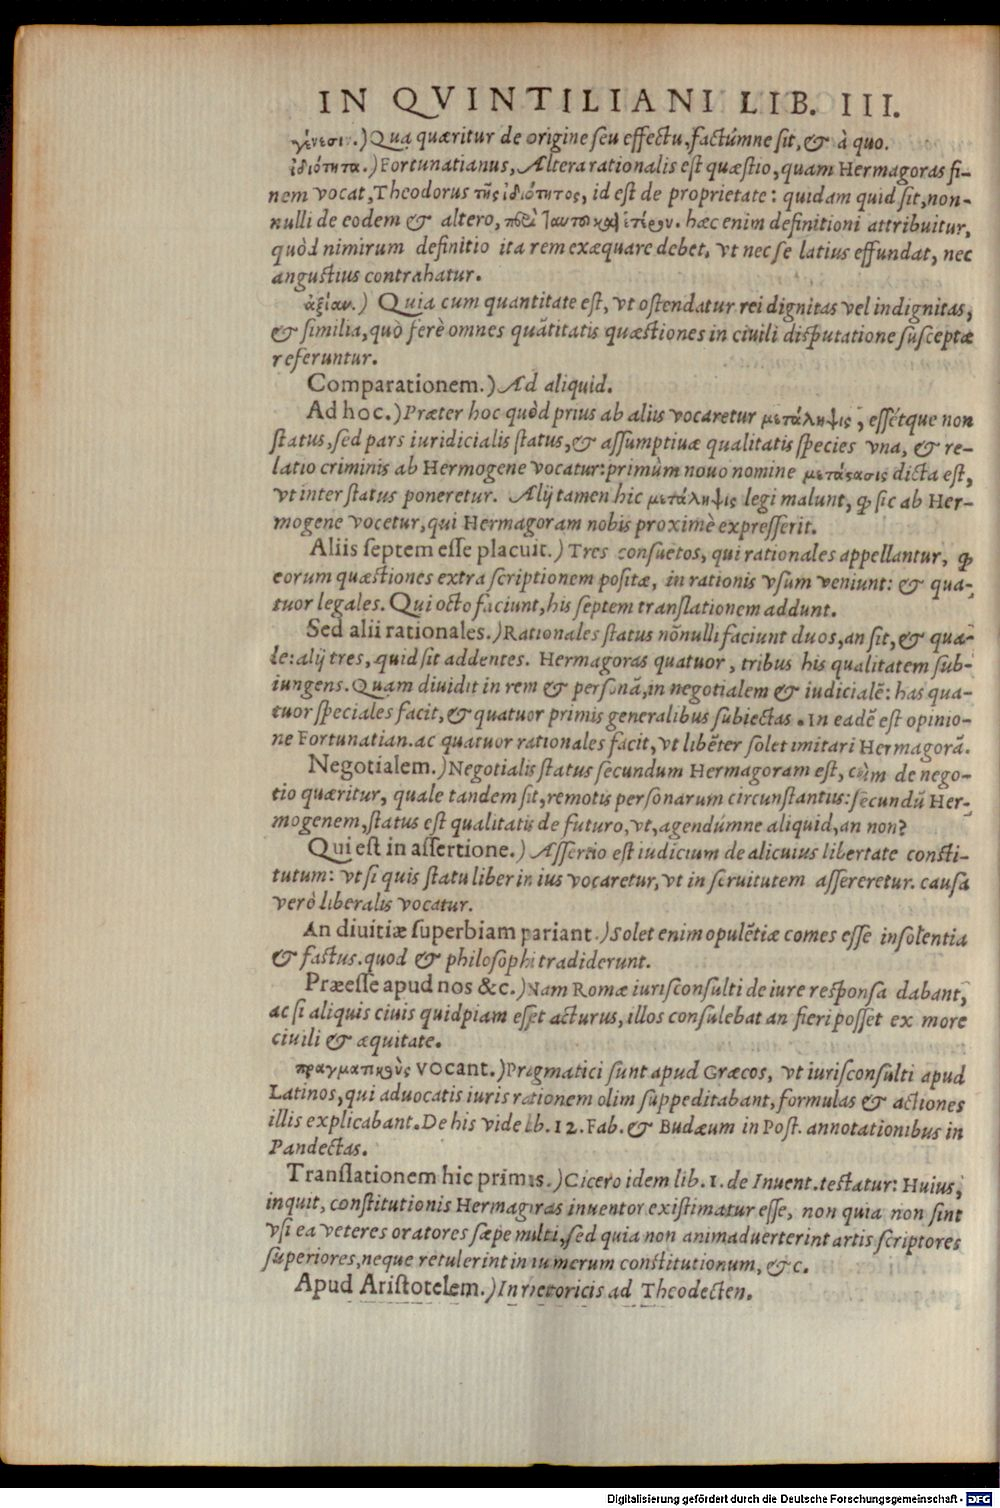 IN QVINTILIANI LIB. III.
γένεσιν.) Qua quæritur de origine seu effectu, factúmne sit, & à quo.
ἰδιότητα.) Fortunatianus, Altera rationalis est quæstio, quam Hermagoras fi-
nem vocat, Theodorus τῆς ἰδιότητος, id est de proprietate: quidam quid sit, non-
nulli de eodem & altero, περὶ ταυτοῦ καὶ ἑτέρου. hæc enim definitioni attribuitur,
quòd nimirum definitio ita rem exæquare debet, vt nec se latius effundat, nec
angustius contrahatur.
ἀξίαν.) Quia cum quantitate est, vt ostendatur rei dignitas vel indignitas,
& similia, quò ferè omnes quãtitatis quæstiones in ciuili disputatione susceptæ
referuntur.
Comparationem.) Ad aliquid.
Ad hoc.) Præter hoc quòd prius ab aliis vocaretur μετάληψις, essétque non
status, sed pars iuridicialis status, & assumptiuæ qualitatis species vna, & re-
latio criminis ab Hermogene vocatur: primùm nouo nomine μετάστασις dicta est,
vt inter status poneretur. Alij tamen hic μετάληψις legi malunt, ꝙ sic ab Her-
mogene vocetur, qui Hermagoram nobis proximè expresserit.
Aliis septem esse placuit.) Tres consuetos, qui rationales appellantur, ꝙ
eorum quæstiones extra scriptionem positæ, in rationis vsum veniunt: & qua-
tuor legales. Qui octo faciunt, his septem translationem addunt.
Sed alii rationales.) Rationales status nõnulli faciunt duos, an sit, & qua-
le: alij tres, quid sit addentes. Hermagoras quatuor, tribus his qualitatem sub-
iungens. Quam diuidit in rem & personã, in negotialem & iudicialẽ: has qua-
tuor speciales facit, & quatuor primis generalibus subiectas. In eadẽ est opinio-
ne Fortunatian. ac quatuor rationales facit, vt libẽter solet imitari Hermagorã.
Negotialem.) Negotialis status secundum Hermagoram est, cùm de nego-
tio quæritur, quale tandem sit, remotis personarum circunstantiis: secundũ Her-
mogenem, status est qualitatis de futuro, vt, agendúmne aliquid, an non?
Qui est in assertione.) Assertio est iudicium de alicuius libertate consti-
tutum: vt si quis statu liber in ius vocaretur, vt in seruitutem assereretur. causa
verò liberalis vocatur.
An diuitiæ superbiam pariant.) Solet enim opulẽtiæ comes esse insolentia
& fastus. quod & philosophi tradiderunt.
Præesse apud nos &c.) Nam Romæ iurisconsulti de iure responsa dabant,
ac si aliquis ciuis quidpiam esset acturus, illos consulebat an fieri posset ex more
ciuili & æquitate.
πραγματικοὺς vocant.) Pragmatici sunt apud Græcos, vt iurisconsulti apud
Latinos, qui aduocatis iuris rationem olim suppeditabant, formulas & actiones
illis explicabant. De his vide lib. 12. Fab. & Budæum in Post. annotationibus in
Pandectas.
Translationem hic primis.) Cicero idem lib. 1. de Inuent. testatur: Huius,
inquit, constitutionis Hermagoras inuentor existimatur esse, non quia non sint
vsi ea veteres oratores sæpe multi, sed quia non animaduerterint artis scriptores
superiores, neque retulerint in numerum constitutionum, &c.
Apud Aristotelem.) In rhetoricis ad Theodecten.
Digitalisierung gefördert durch die Deutsche Forschungsgemeinschaft - DFG